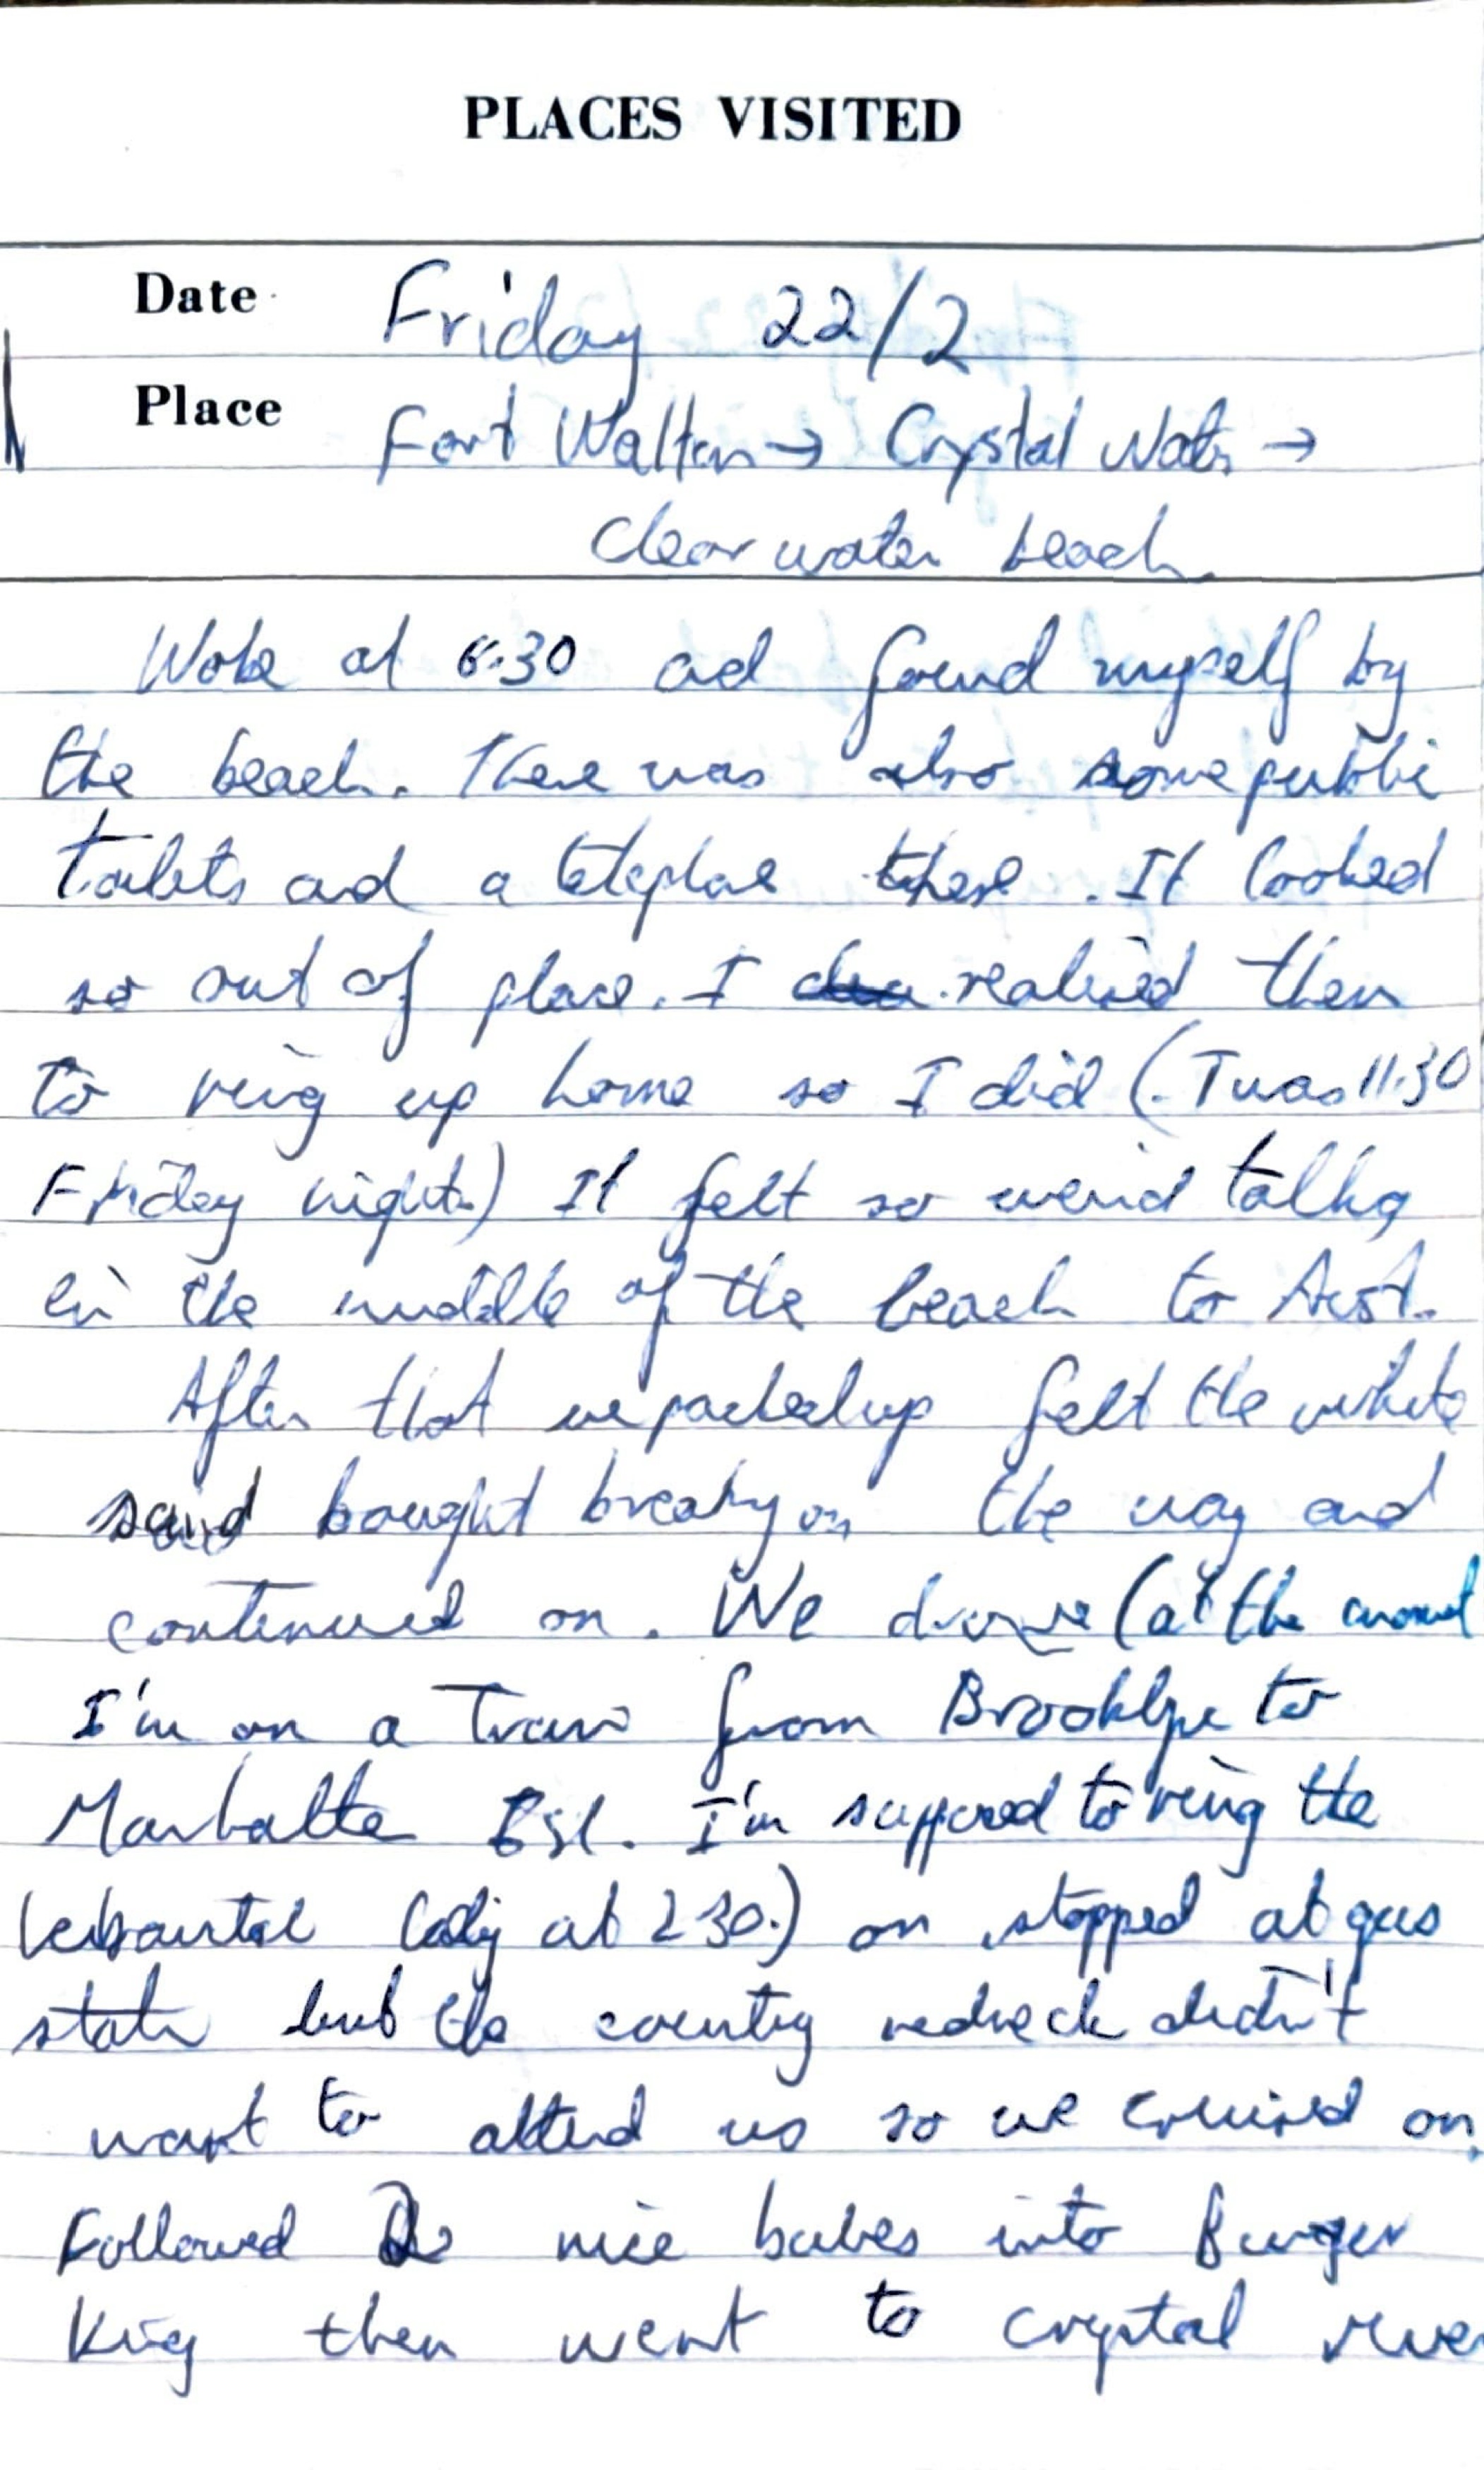 PLACES VISITED
Date Friday 22/2
Place Fort Walton → Crystal Watr →
Clear water beach
Woke at 6:30 ad found myself by
the beach. There was also some public
toilets ad a telephoe there. It looked
so out of place. I realised then
to ring up home so I did (Twas 11.30
Friday night.) It felt so weird talkig
in the middle of the beach to Aust.
After that we packed up felt the white
sand bought breaky on the way and
continued on. We drove (at the
I'm on a Train from Brooklyn to
Manhatte Isl. I'm supposed to ring the
at 2 30.) on stopped at gas
statn but the country redneck didn't
want to attend us so we cruised on.
Followed 2 nice babes into Burger
King then went to crystal river